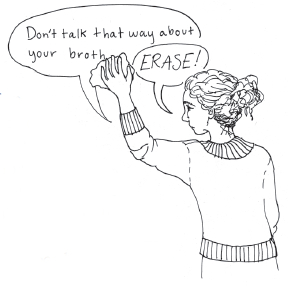 Don't talk that way about
your broth
ERASE!